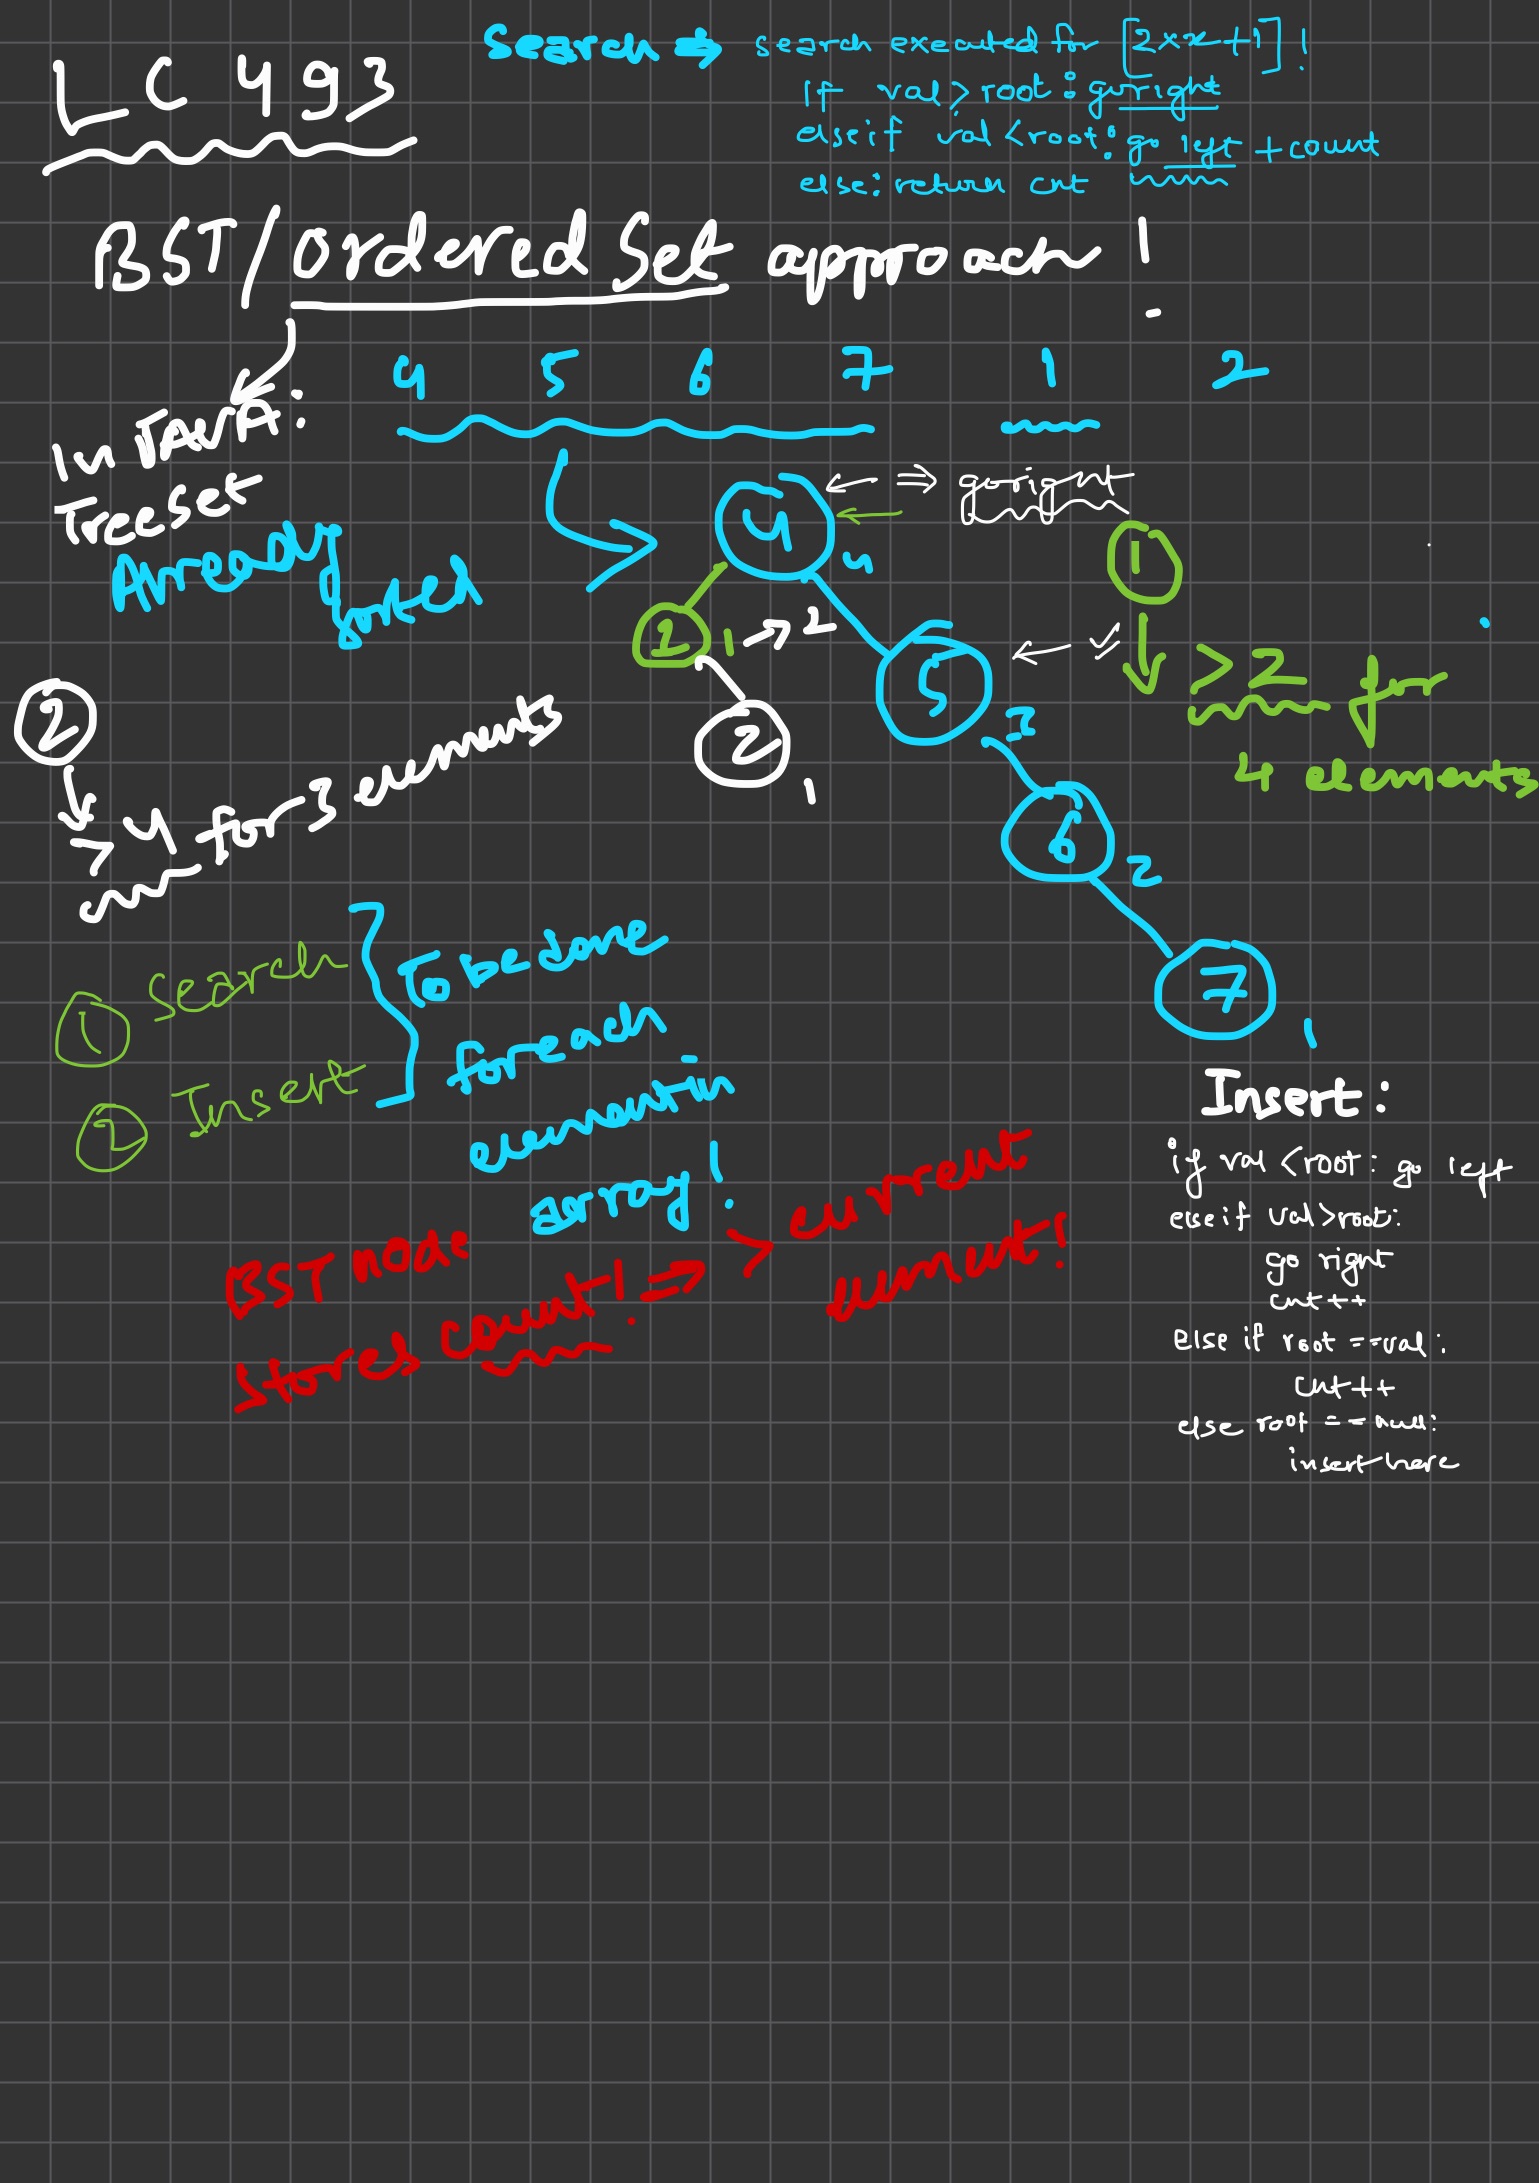 LC 493
Search ⇒ search executed for [2*x+1]!
If val > root: go right
else if val < root: go left + count
else: return cnt
BST/Ordered Set approach!
In JAVA:
Treeset
Already
sorted
4 5 6 7 1 2
4 ← ⇒ go right
4
1
2 1 → 2
5 ←
3
> 2 for
4 elements
2
1
2
> 4 for 3 elements
6
2
7
1
① Search
② Insert
To be done
for each
element in
array!
BST node
stores count! ⇒ > current
element!
Insert:
if val < root: go left
else if val > root:
go right
cnt++
else if root == val:
cnt++
else root == null:
insert here